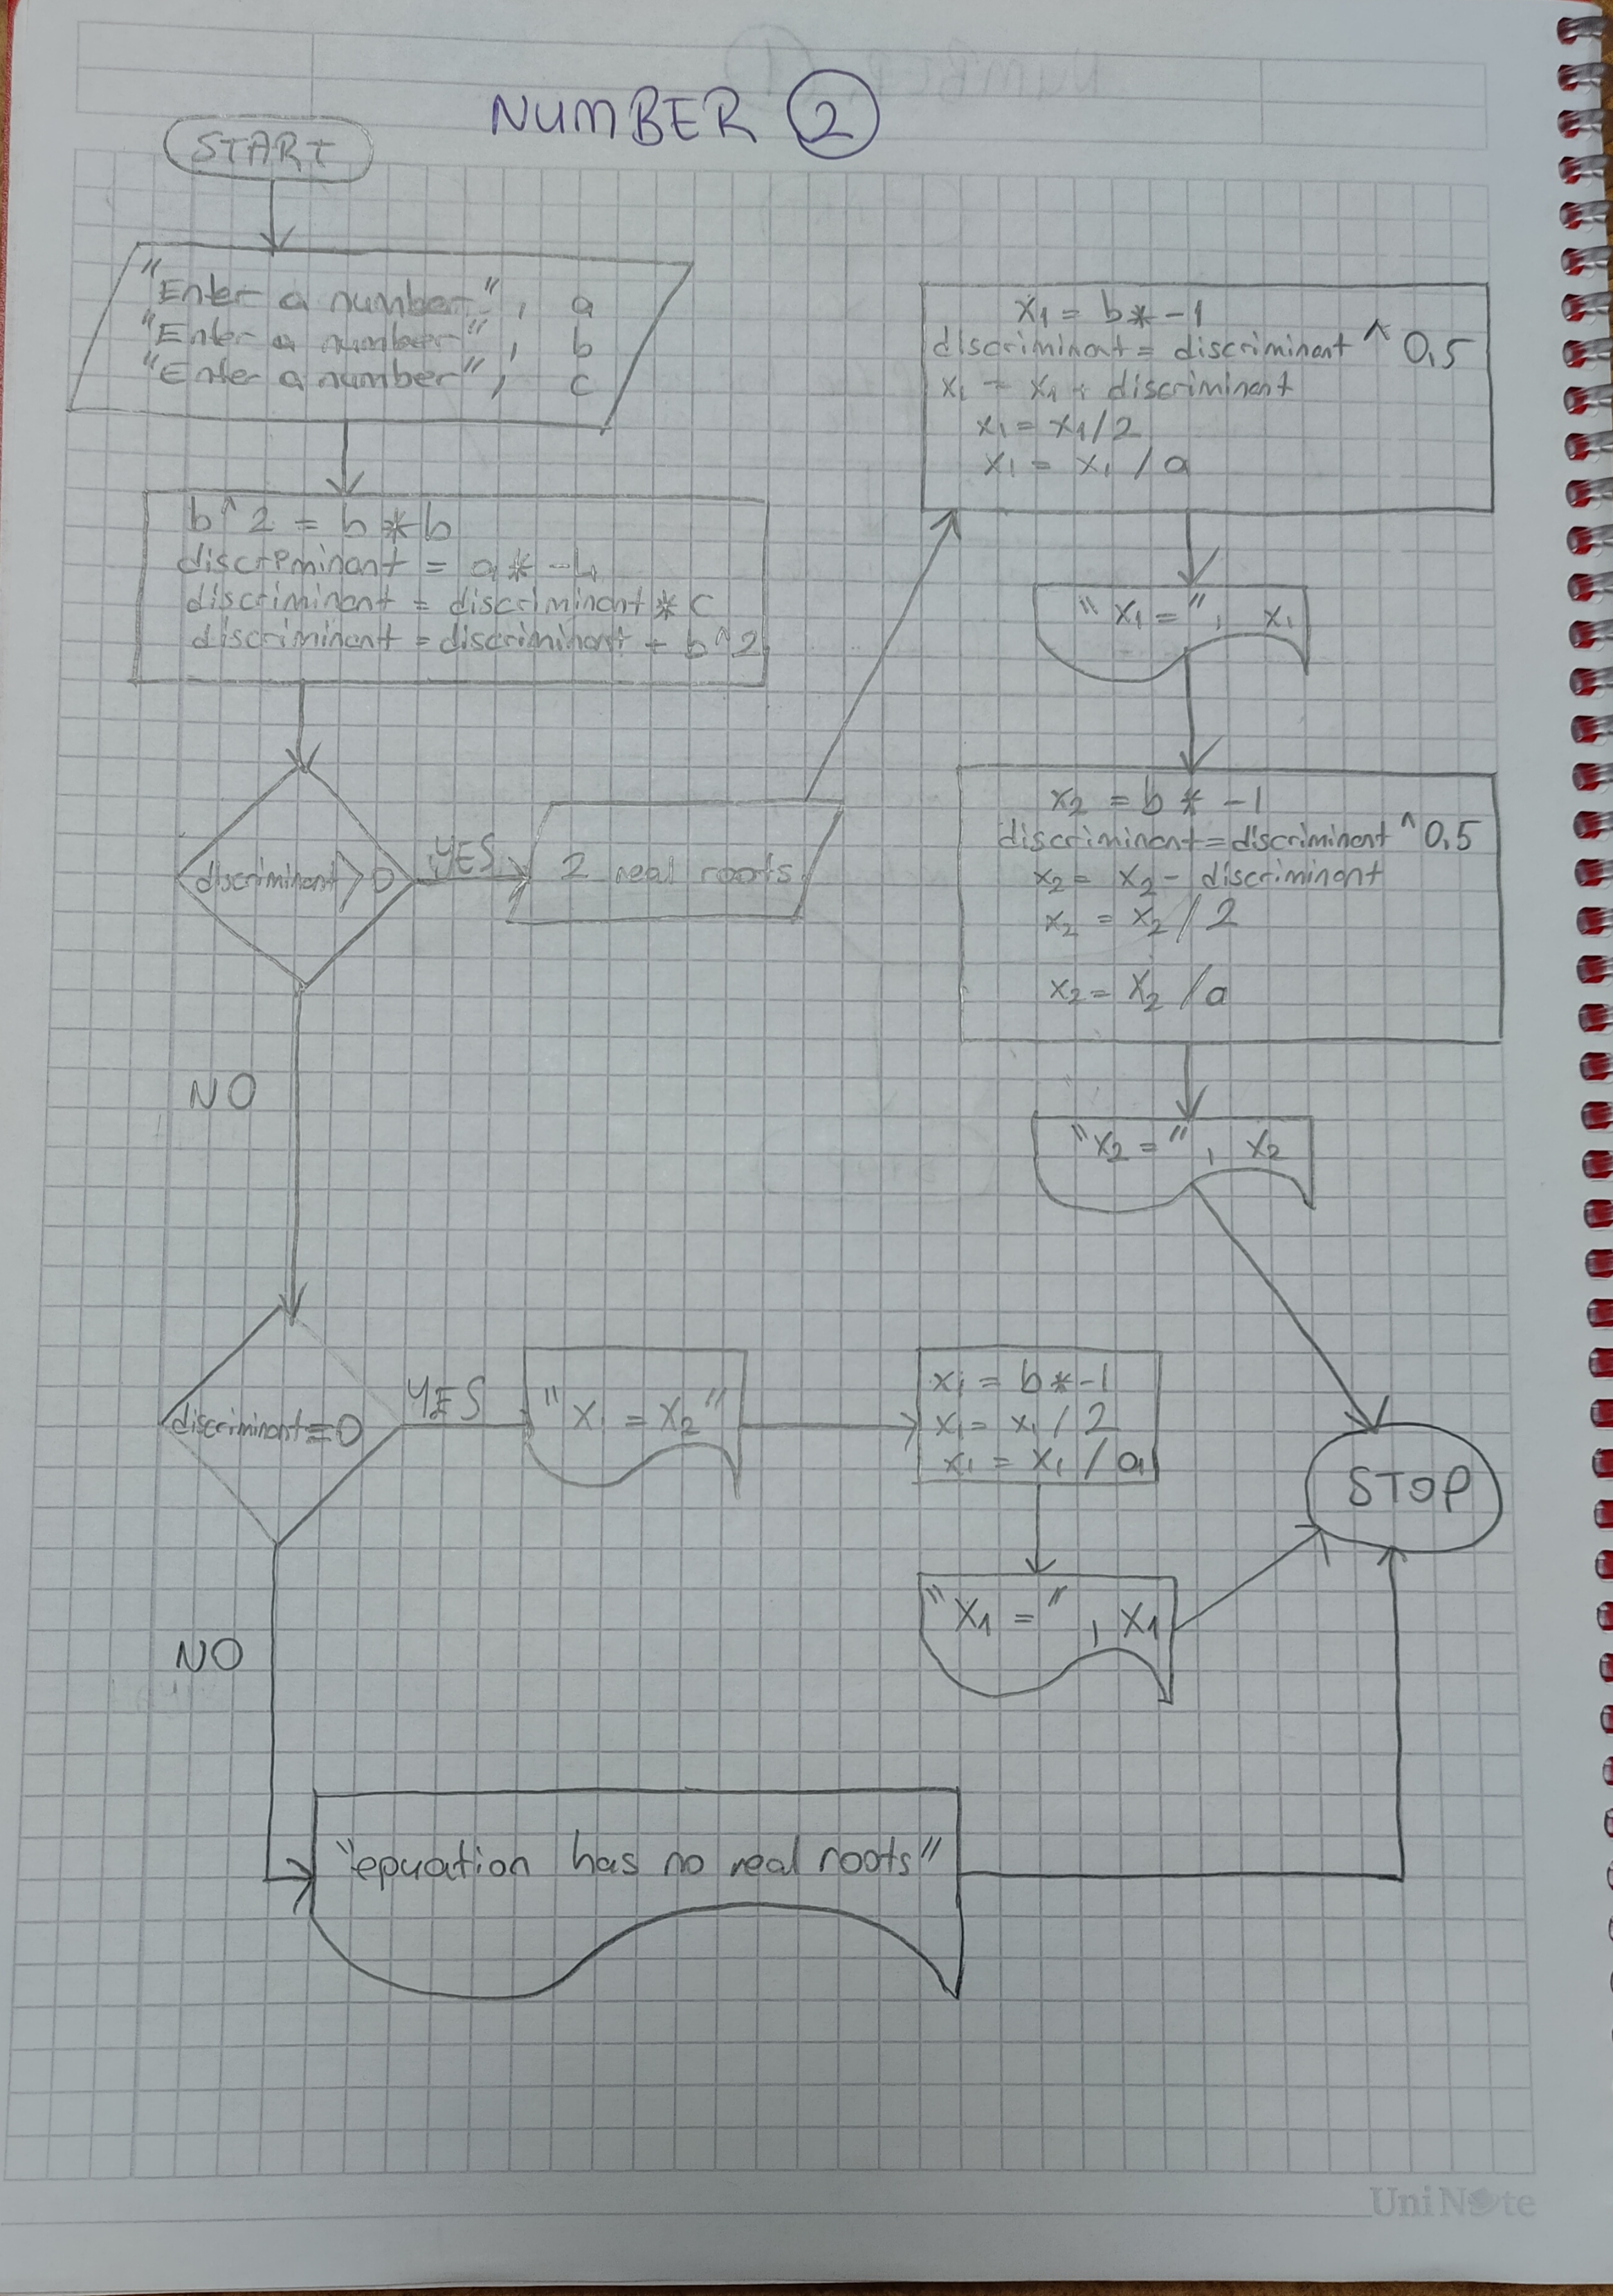 NUMBER 2
START
"Enter a number", a
"Enter a number", b
"Enter a number", c
b^2 = b * b
discreminant = a * -4
discriminant = discriminant * c
discriminant = discriminant + b^2
discriminant > 0
YES
2 real roots
x1 = b * -1
discriminant = discriminant ^ 0.5
x1 = x1 + discriminant
x1 = x1 / 2
x1 = x1 / a
"x1 =", x1
x2 = b * -1
discriminant = discriminant ^ 0.5
x2 = x2 - discriminant
x2 = x2 / 2
x2 = x2 / a
"x2 =", x2
NO
discriminant = 0
YES
"x1 = x2"
x1 = b * -1
x1 = x1 / 2
x1 = x1 / a
"x1 =", x1
STOP
NO
"epuation has no real roots"
UniNote